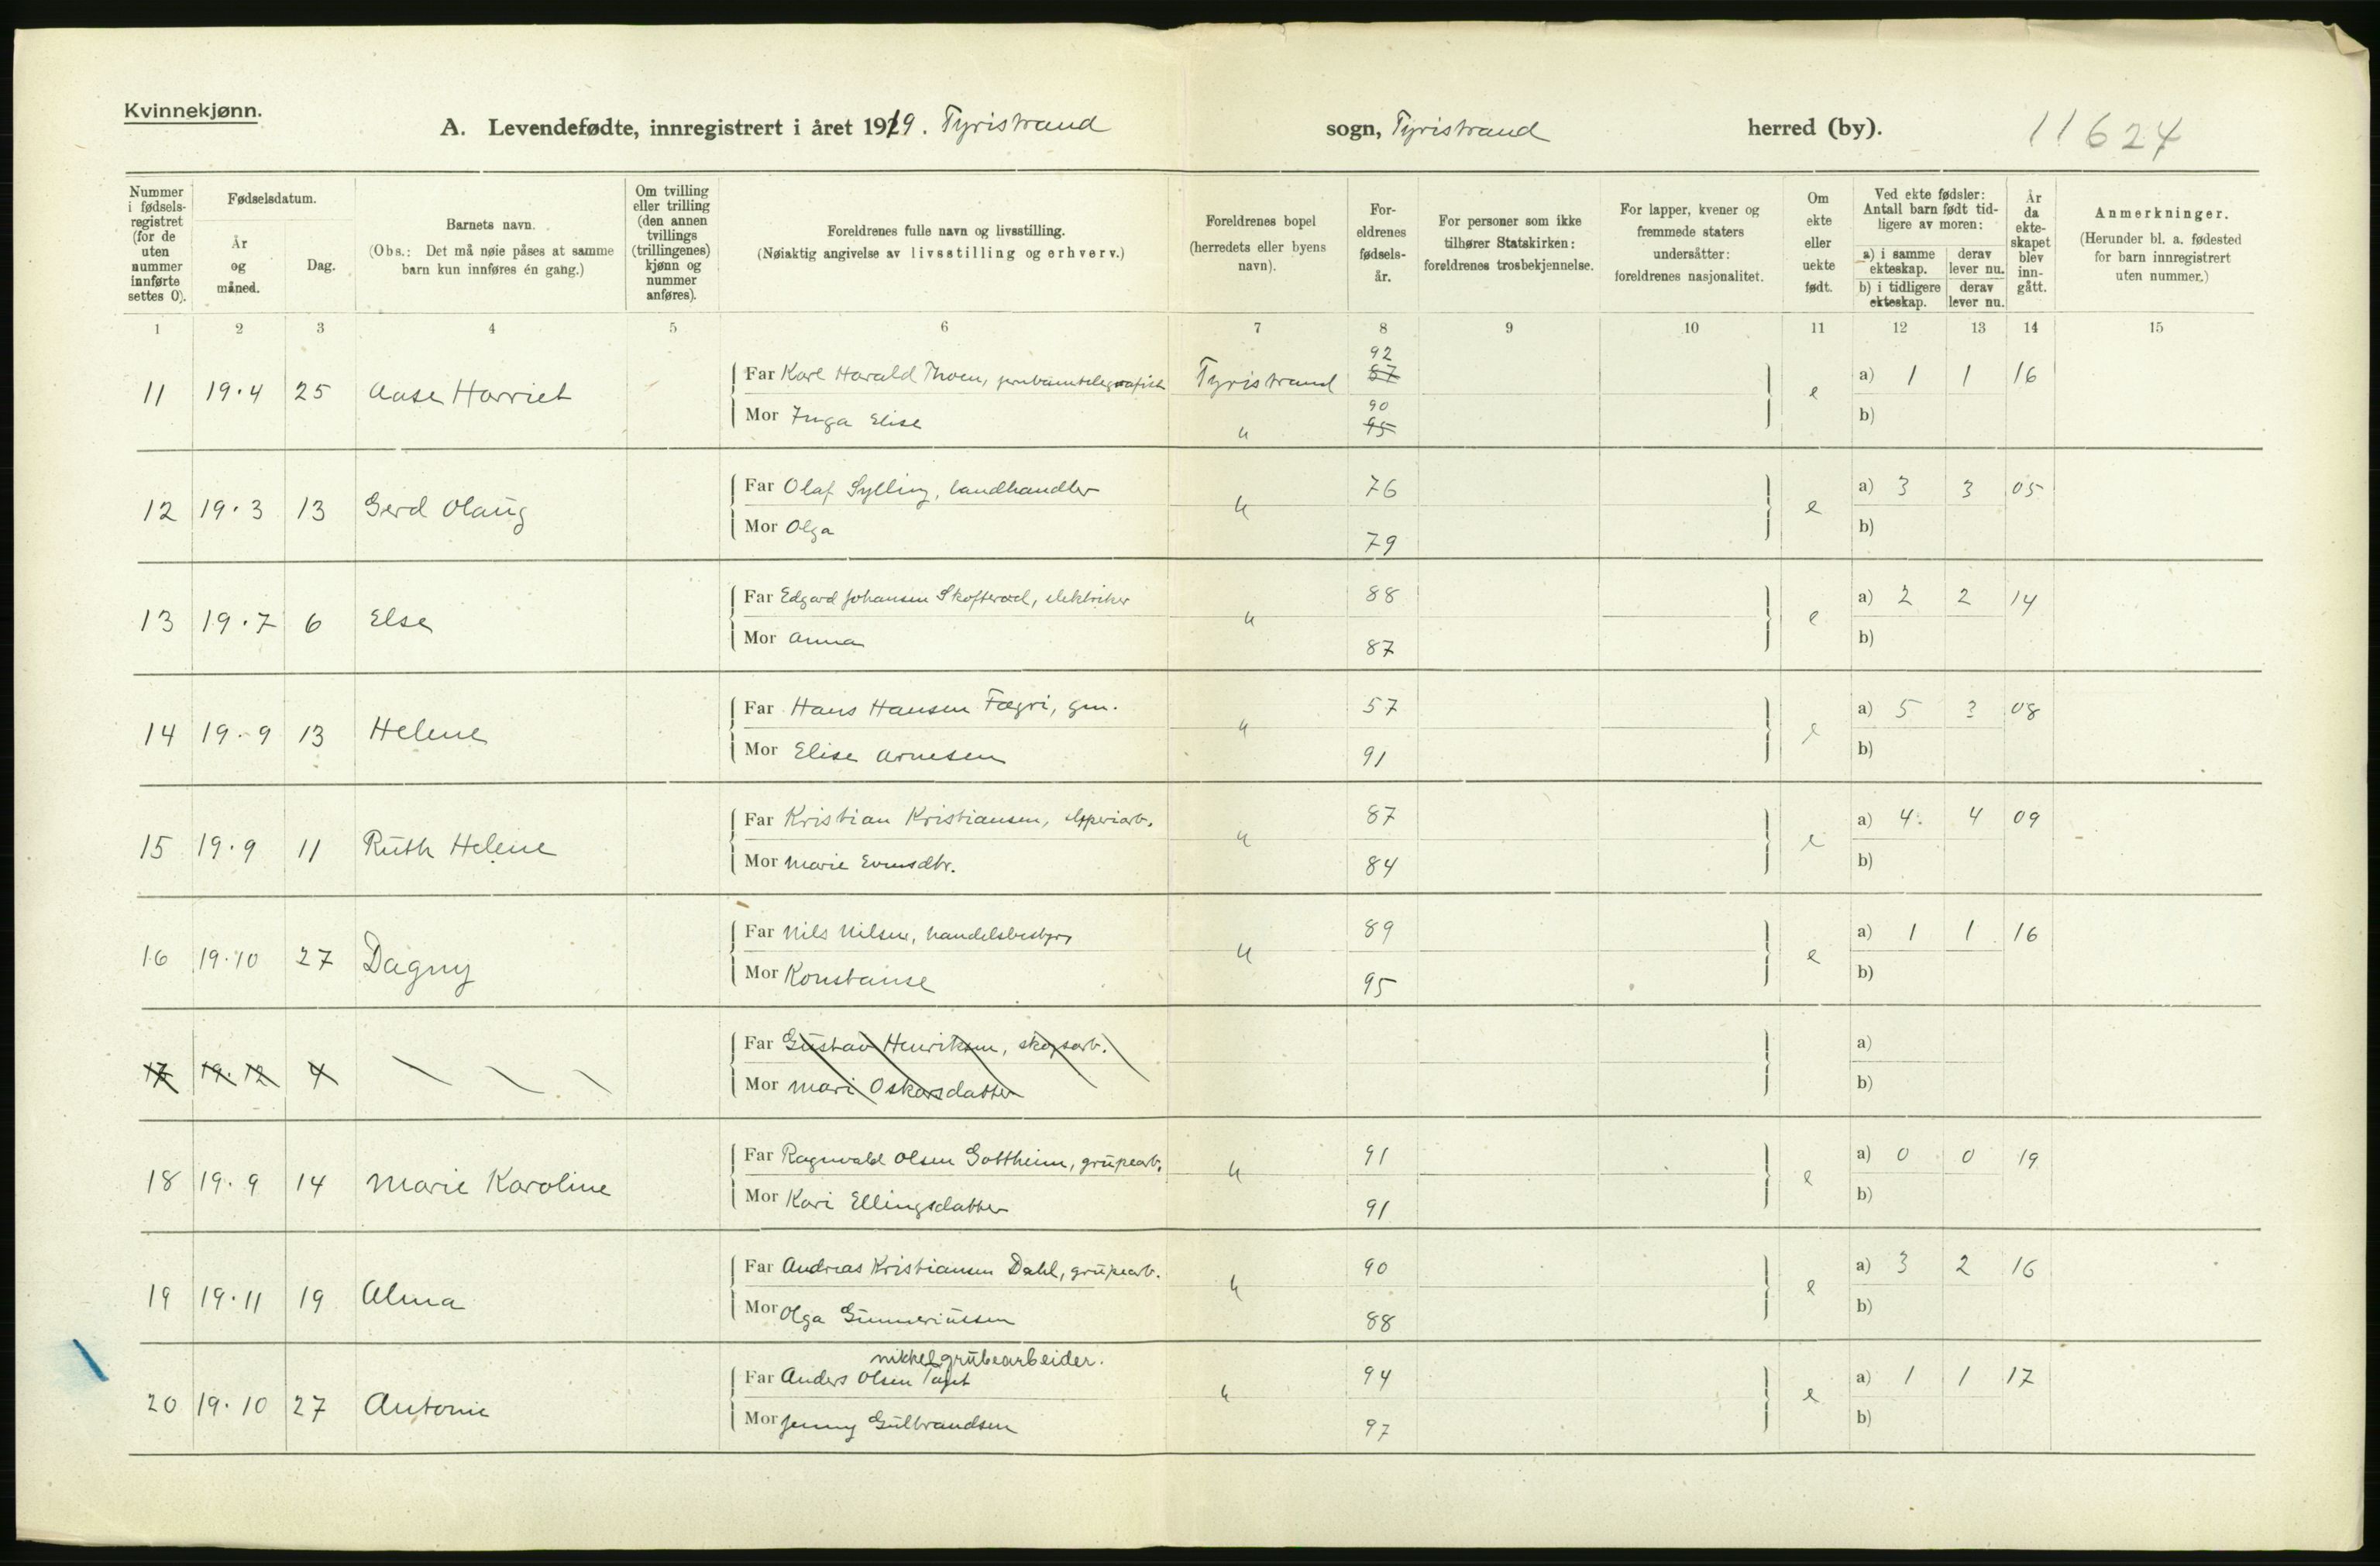 Kvinnekjønn.
A. Levendefødte, innregistrert i året 1919. Tyristrand sogn, Tyristrand herred (by). 11624
Nummer i fødselsregistret (for de uten nummer innførte settes 0).
Fødselsdatum.
År og måned.
Dag.
Barnets navn.
(Obs.: Det må nøie påses at samme barn kun innføres én gang.)
Om tvilling eller trilling (den annen tvillings (trillingenes) kjønn og nummer anføres).
Foreldrenes fulle navn og livsstilling.
(Nøiaktig angivelse av livsstilling og erhverv.)
Foreldrenes bopel (herredets eller byens navn).
Foreldrenes fødselsår.
For personer som ikke tilhører Statskirken: foreldrenes trosbekjennelse.
For lapper, kvener og fremmede staters undersåtter: foreldrenes nasjonalitet.
Om ekte eller uekte født.
Ved ekte fødsler: Antall barn født tidligere av moren:
a) i samme ekteskap. derav lever nu.
b) i tidligere ekteskap. derav lever nu.
År da ekteskapet blev inngått.
Anmerkninger.
(Herunder bl. a. fødested for barn innregistrert uten nummer.)
1 2 3 4 5 6 7 8 9 10 11 12 13 14 15
11 19.4 25 Aase Harriet Far Karl Harald Thoen, jernbanetelegrafist Tyristrand 92 87 e a) 1 1 16
Mor Inga Elise " 90 95 b)
12 19.3 13 Gerd Olaug Far Olaf Sylling, landhandler " 76 e a) 3 3 05
Mor Olga 79 b)
13 19.7 6 Else Far Edgard Johansen Skofterød, elektriker " 88 e a) 2 2 14
Mor Anna 87 b)
14 19.9 13 Helene Far Hans Hansen Fægri, gm. " 57 e a) 5 3 08
Mor Elise Arnesen 91 b)
15 19.9 11 Ruth Helene Far Kristian Kristiansen, " 87 e a) 4 4 09
Mor Marie 84 b)
16 19.10 27 Dagny Far Nils Nilsen, handelsbestyrer " 89 e a) 1 1 16
Mor Konstanse 95 b)
17 19.12 4 Far Gustav Henriksen, skogsarb. a)
Mor Mari Oskarsdatter b)
18 19.9 14 Marie Karoline Far Ragnvald Olsen Gottheim, grubearb. " 91 e a) 0 0 19
Mor Kari Ellingsdatter 91 b)
19 19.11 19 Alma Far Andreas Kristiansen Dahl, grubearb. " 90 e a) 3 2 16
Mor Olga Gunneriussen 88 b)
nikkelgrubearbeider.
20 19.10 27 Antonie Far Anders Olsen " 94 e a) 1 1 17
Mor Jenny Gulbrandsen 97 b)